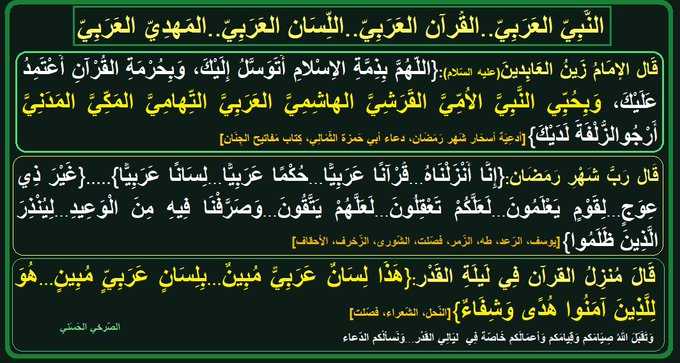 النَّبِيّ العَرَبِيّ..القُرآن العَرَبِيّ..اللِّسَان العَرَبِيّ..المَهدِيّ العَرَبِيّ
قَال الإمَامُ زَينُ العَابِدينَ(عليه السّلام):{اللَّهُمَّ بِذِمَّةِ الإسْلامِ أتَوَسَّلُ إلَيْكَ، وَبِحُرْمَةِ القُرْآنِ أعْتَمِدُ
عَلَيْكَ، وَبِحُبِّي النَّبِيَّ الأمِّيَّ القَرَشِيَّ الهاشِمِيَّ العَرَبِيَّ التِّهامِيَّ المَكِّيَّ المَدَنِيَّ
أرْجُوالزُّلْفَةَ لَدَيْكَ}[أدعِيَة أسحَار شَهر رَمَضَان، دعاء أبي حَمزة الثّمَالي، كتَاب مفَاتيح الجِنَان]
قَال رَبَّ شَهْرِ رَمَضَان:{إِنَّا أَنْزَلْنَاهُ...قُرْآنًا عَرَبِيًّا...حُكْمًا عَرَبِيًّا...لِسَانًا عَرَبِيًّا}.....{غَيْرَ ذِي
عِوَجٍ...لِقَوْمٍ يَعْلَمُونَ...لَعَلَّكُمْ تَعْقِلُونَ...لَعَلَّهُمْ يَتَّقُونَ...وَصَرَّفْنَا فِيهِ مِنَ الْوَعِيدِ...لِيُنْذِرَ
الَّذِينَ ظَلَمُوا}[يوسف، الرّعد، طه، الزّمر، فصّلت، الشّورى، الزّخرف، الأحقاف]
قَالَ مُنزِلُ القرآن فِي لَيلَةِ القَدْر:{هَذَا لِسَانٌ عَرَبِيٌّ مُبِينٌ...بِلِسَانٍ عَرَبِيٍّ مُبِينٍ...هُوَ
لِلَّذِينَ آمَنُوا هُدًى وَشِفَاءٌ}[النّحل، الشّعراء، فصّلت]
الصّرخي الحَسَني
وتَقَبَّلَ اللهُ صِيَامَكُم وَقِيَامَكُم وَأعمَالَكُم خَاصّة فِي لَيَالِي القَدْر...وَنَسألُكُم الدّعاء